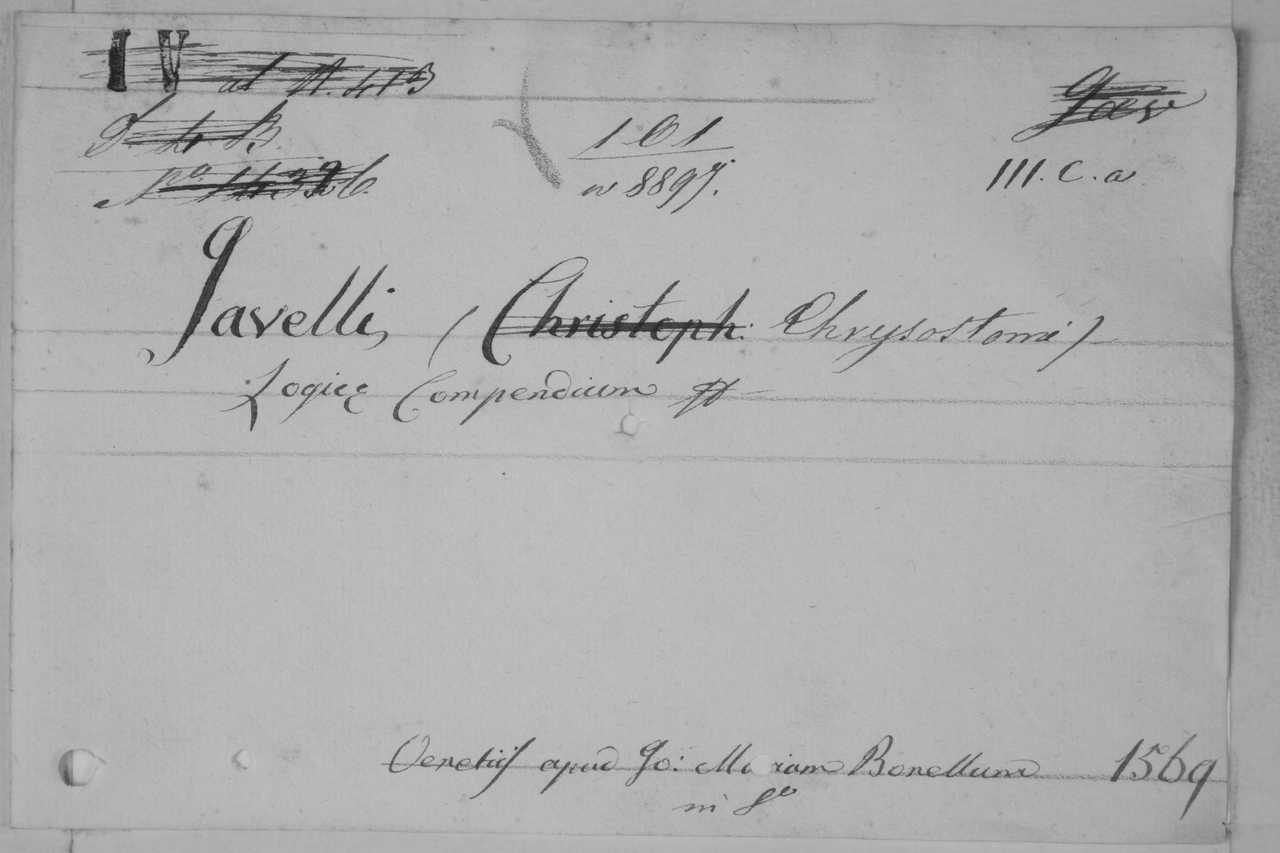 IV al A. 41B
T. 4. B.
101
Jav
N.º
n 8897.
III. C. a
Javelli, (Christoph: Chrysostomi)
Logicę Compendium
Venetiis apud Jo: Ma riam Bonellum 1569
in 8º